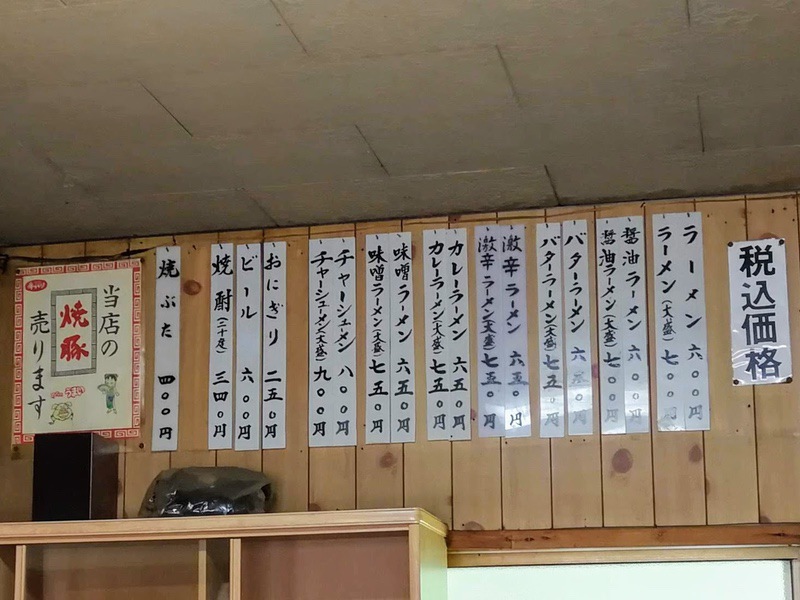 税込価格
ラーメン 六〇〇円
ラーメン(大盛) 七〇〇円
醤油ラーメン 六〇〇円
醤油ラーメン(大盛) 七〇〇円
バターラーメン 六五〇円
バターラーメン(大盛) 七五〇円
激辛ラーメン 六五〇円
激辛ラーメン(大盛) 七五〇円
カレーラーメン 六五〇円
カレーラーメン(大盛) 七五〇円
味噌ラーメン 六五〇円
味噌ラーメン(大盛) 七五〇円
チャーシュメン 八〇〇円
チャーシューメン(大盛) 九〇〇円
おにぎり 二五〇円
ビール 六〇〇円
焼酎(二十度) 三四〇円
焼ぶた 四〇〇円
当店の
焼豚
売ります